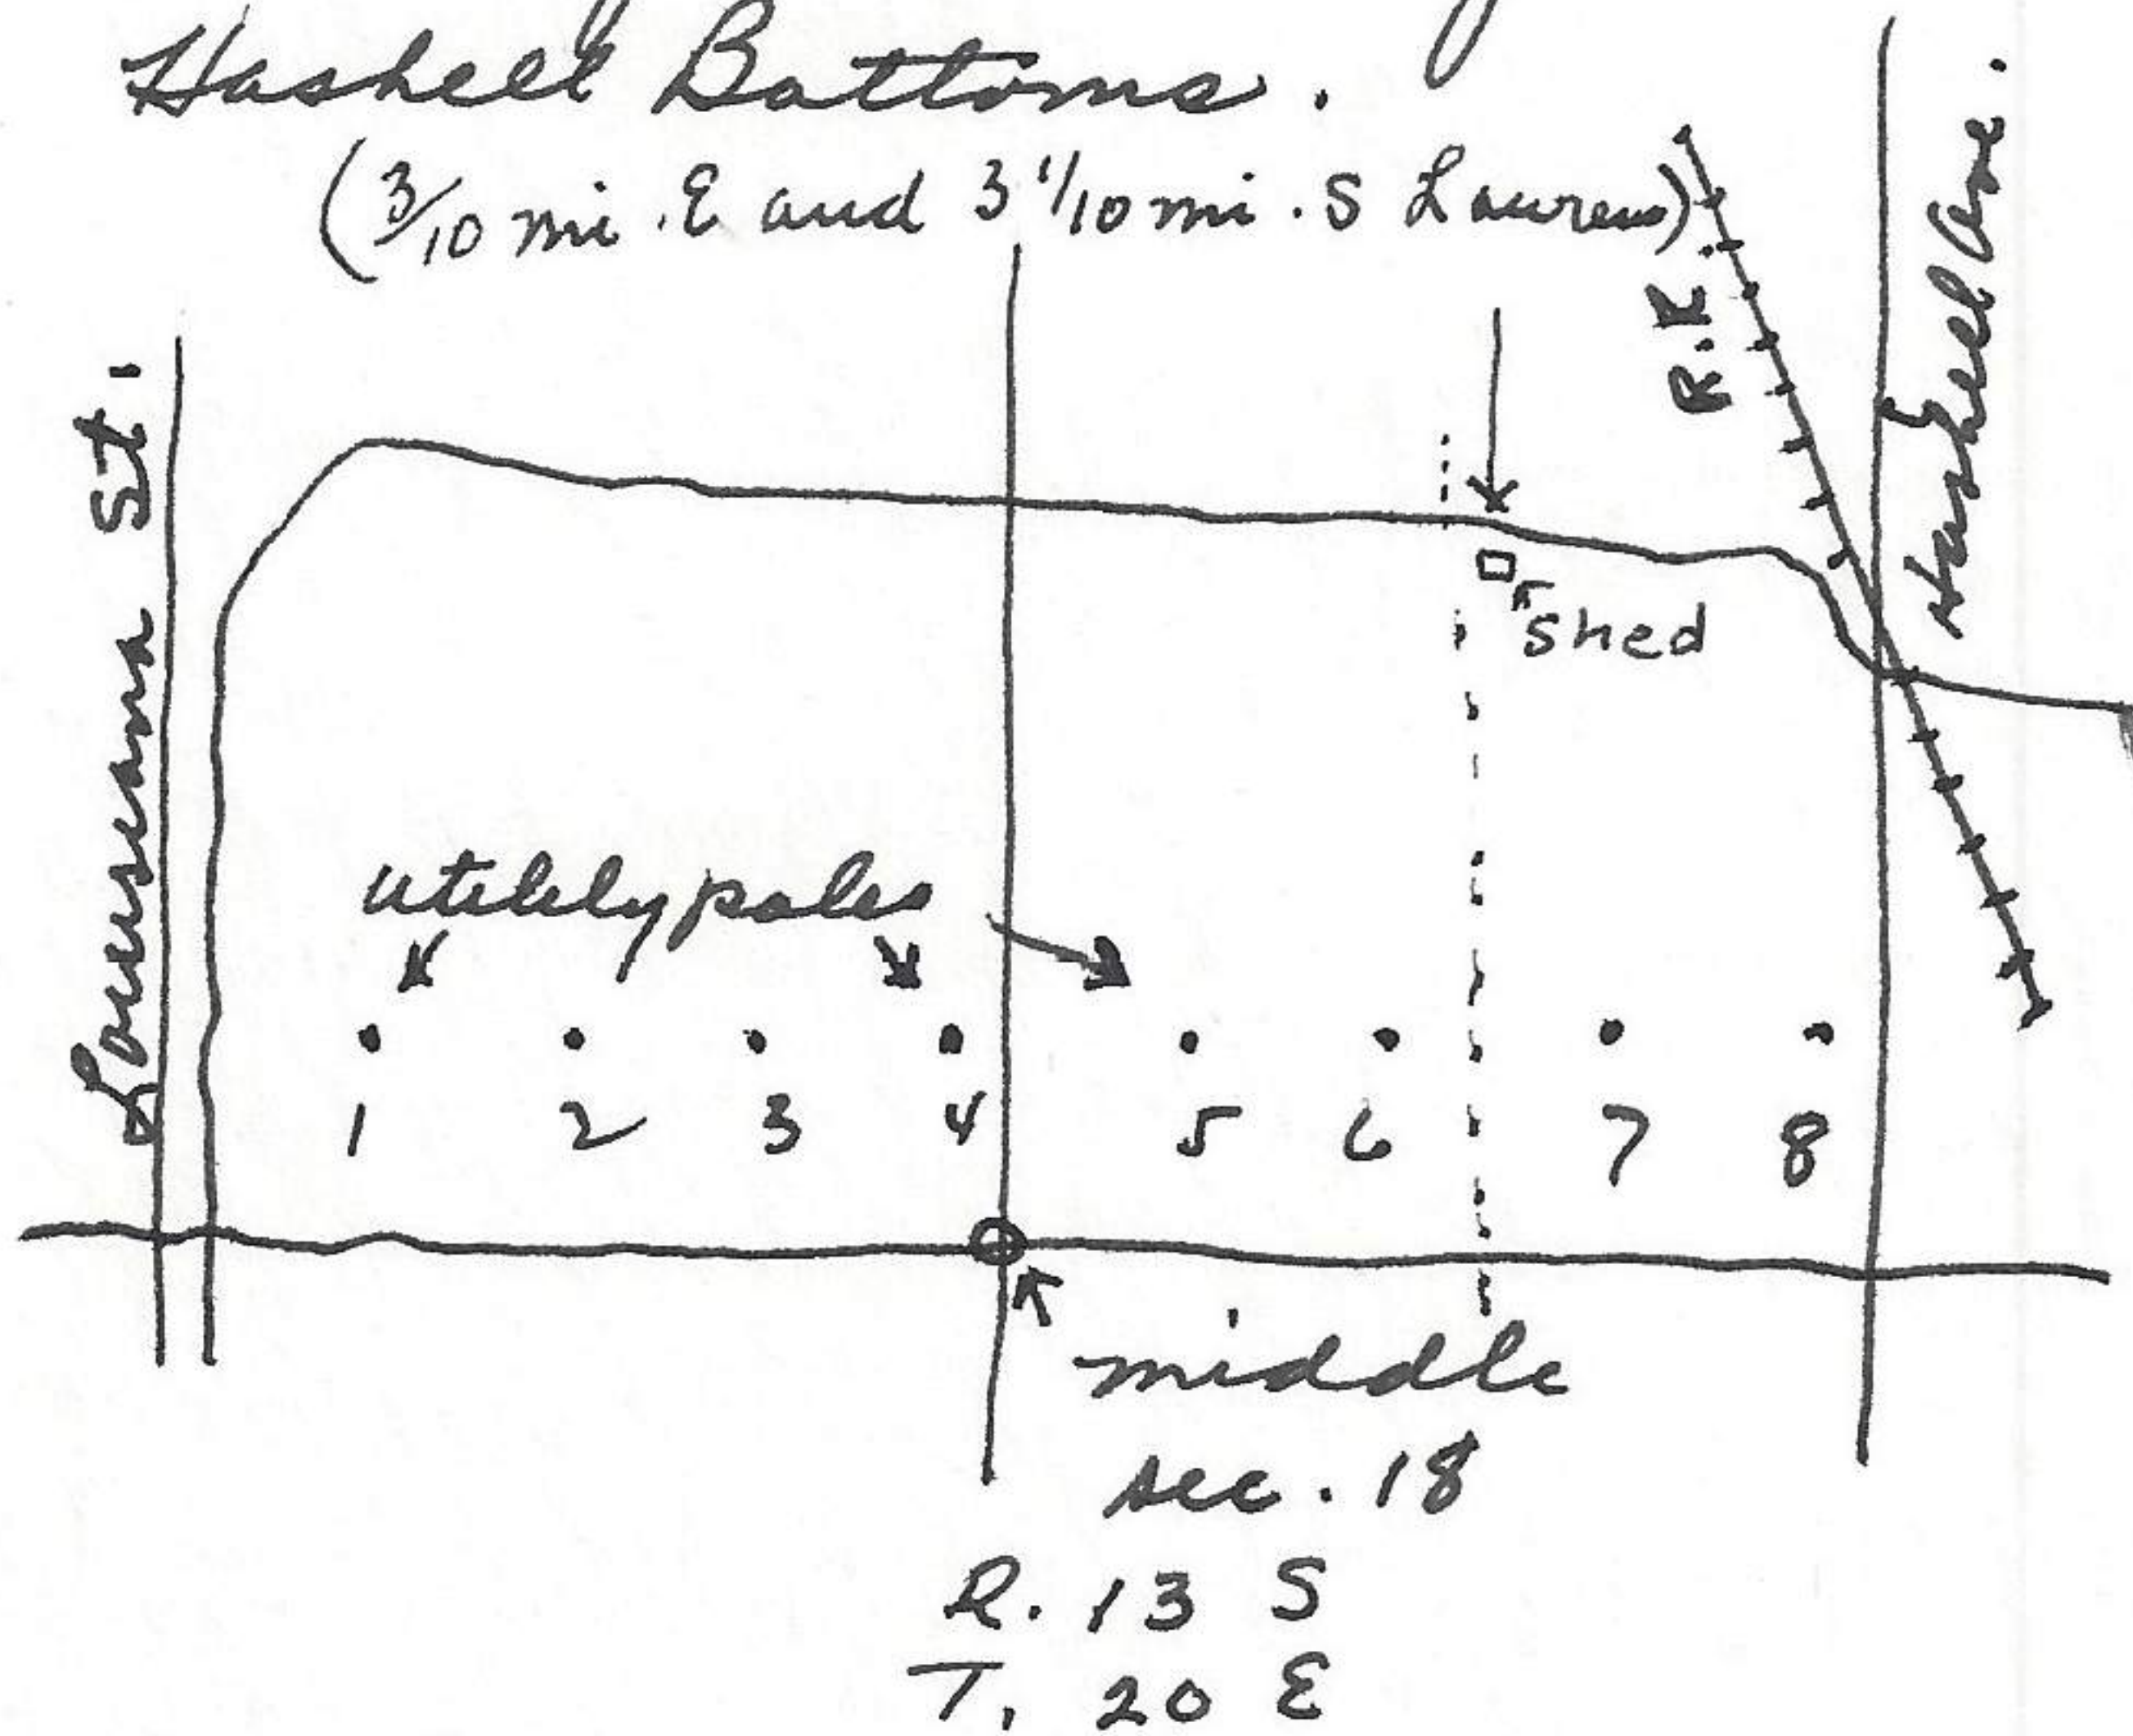 Haskell Bottoms.
(3/10 mi. E and 3 1/10 mi. S Lawrence)
R.R.
Haskell Ave.
Louisiana St.
shed
utility poles
1 2 3 4 5 6 7 8
middle
sec. 18
R. 13 S
T. 20 E